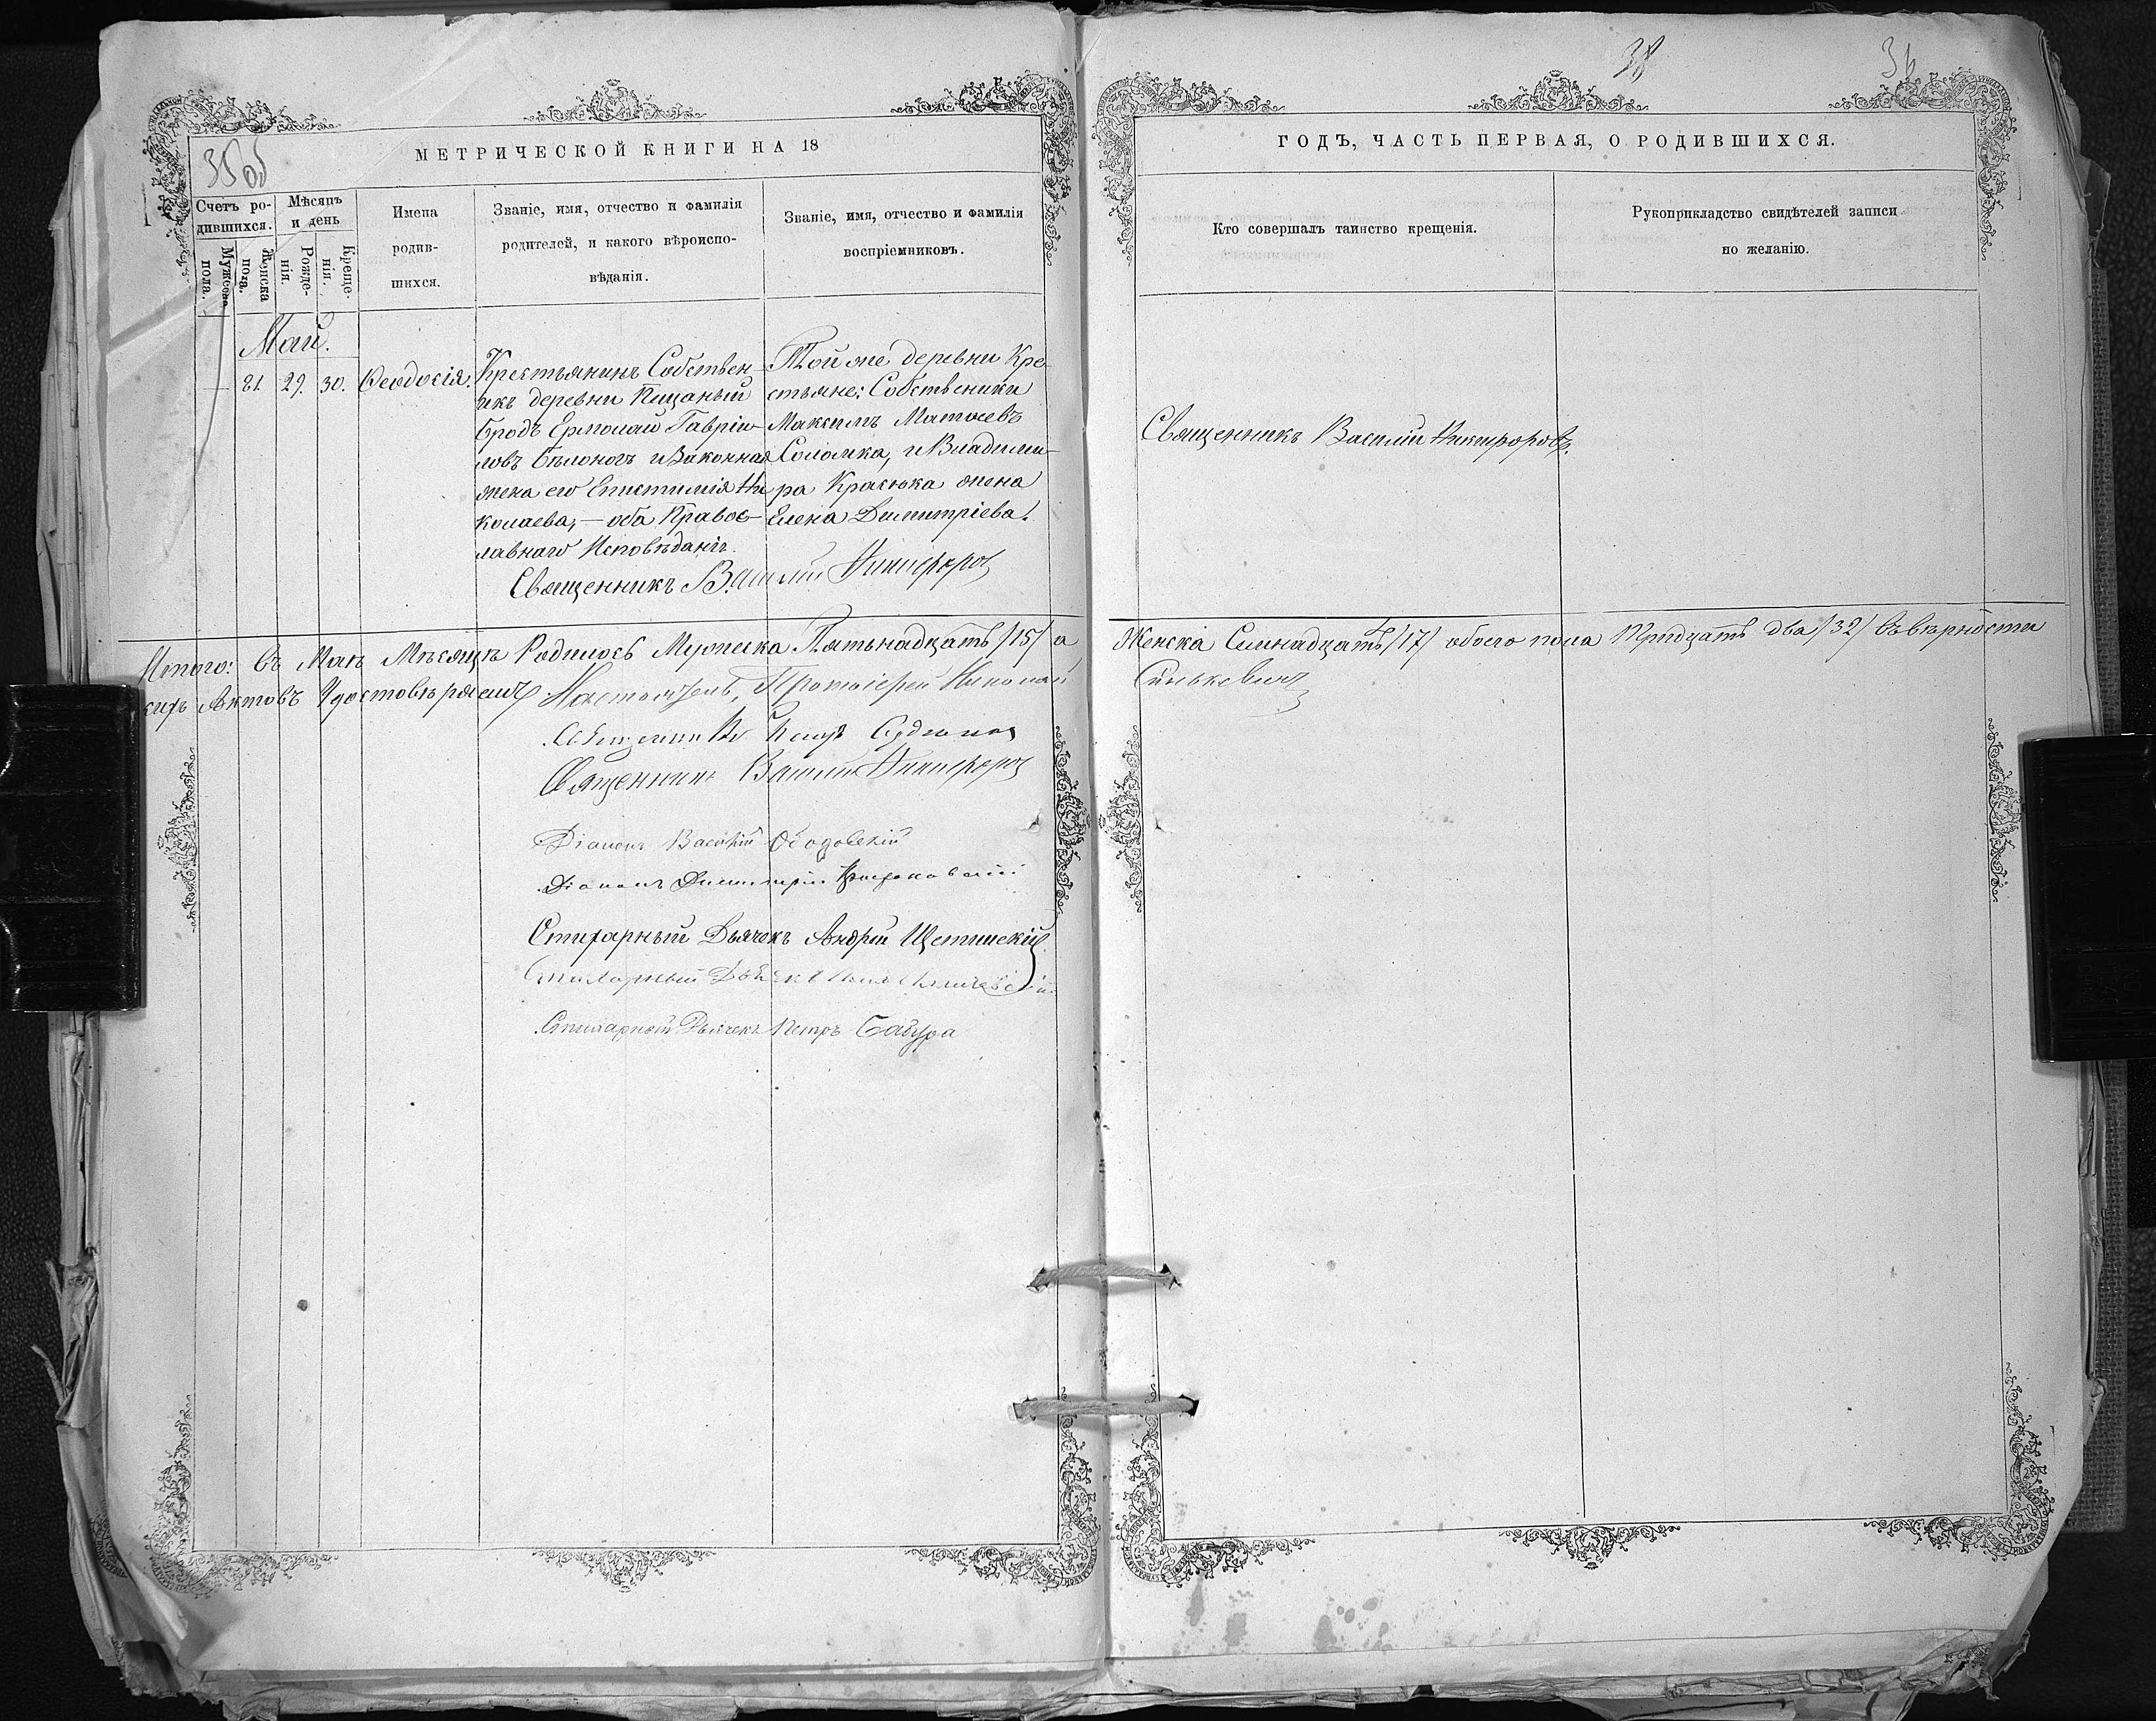 38
36
35об
МЕТРИЧЕСКОЙ КНИГИ НА 18
ГОДЪ, ЧАСТЬ ПЕРВАЯ, О РОДИВШИХСЯ.
Счетъ ро-
дившихся.
Мужеска
пола.
Женска
пола.
Мѣсяцъ
и день
Рожде-
нія.
Креще-
нія.
Имена
родив-
шихся.
Званіе, имя, отчество и фамилія
родителей, и какого вѣроиспо-
вѣданія.
Званіе, имя, отчество и фамилія
воспріемниковъ.
Кто совершалъ таинство крещенія.
Рукоприкладство свидѣтелей записи
по желанію.
Май.
— 81. 29. 30. Ѳеодосія.
Крестьянинъ Собствен-
икъ деревни Пещаный
бродъ Ермолай Гаврiи-
ловъ Бѣлоногъ и Законная
жена его Епистимія Ни
колаева, — оба Правос-
лавнаго Исповѣданія.
Той же деревни Кре-
стьяне: Собственики
Максимъ Матѳеевъ
Соломка, и Владими-
ра Краснока жена
Елена Димитріева.
Священникъ Василій Никифоровъ
Священникъ Василій Никифоровъ.
Итого: въ Маѣ Мѣсяцѣ Родилось Мужеска Пятьнадцать /15/ а Женска Семнадцать /17/ обоего пола Тридцать два /32/ въ вѣрности
сихъ Актовъ Удостовѣряемъ Настоятель, Протоіерей Николай Синькевичъ
Священникъ
Священникъ Василій Никифоровъ
Діаконъ Василій Ободовскій
Діаконъ Димитрій
Стихарный Дьячекъ Андрей Щетинскій
Стихарный Дьячекъ
Стихарный Дьячекъ Петръ Бабура